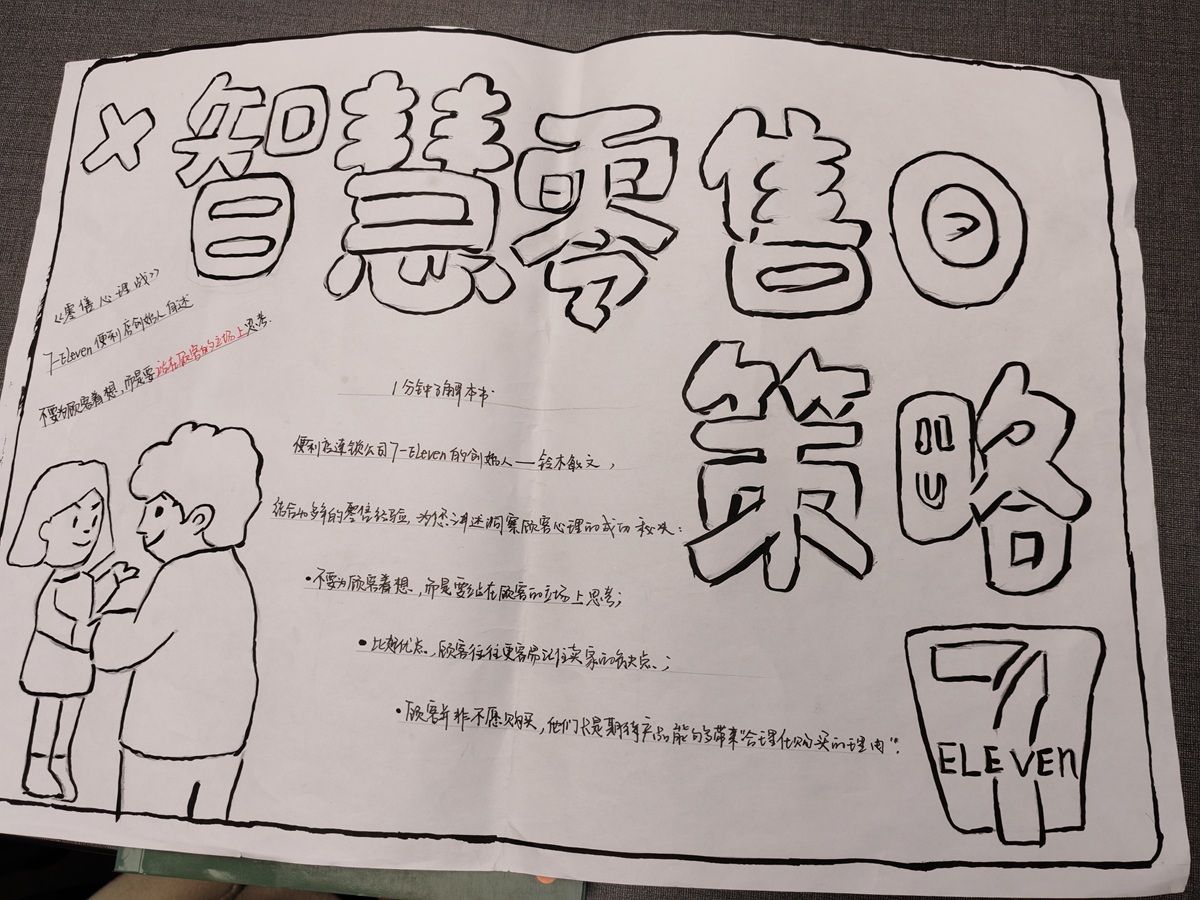 ×智慧零售
策略
《零售心理战》
7-Eleven便利店创始人自述
不要为顾客着想，而是要站在顾客的立场上思考.
1分钟了解本书.
便利店连锁公司7-Eleven的创始人——铃木敏文，
结合40多年的零售经验，为您讲述洞察顾客心理的成功秘诀：
•不要为顾客着想，而是要站在顾客的立场上思考；
•比起优点，顾客往往更容易记住卖家的缺点；
•顾客并非不愿购买，他们只是期待产品能够带来“合理化购买的理由”.
7
ELEVEn